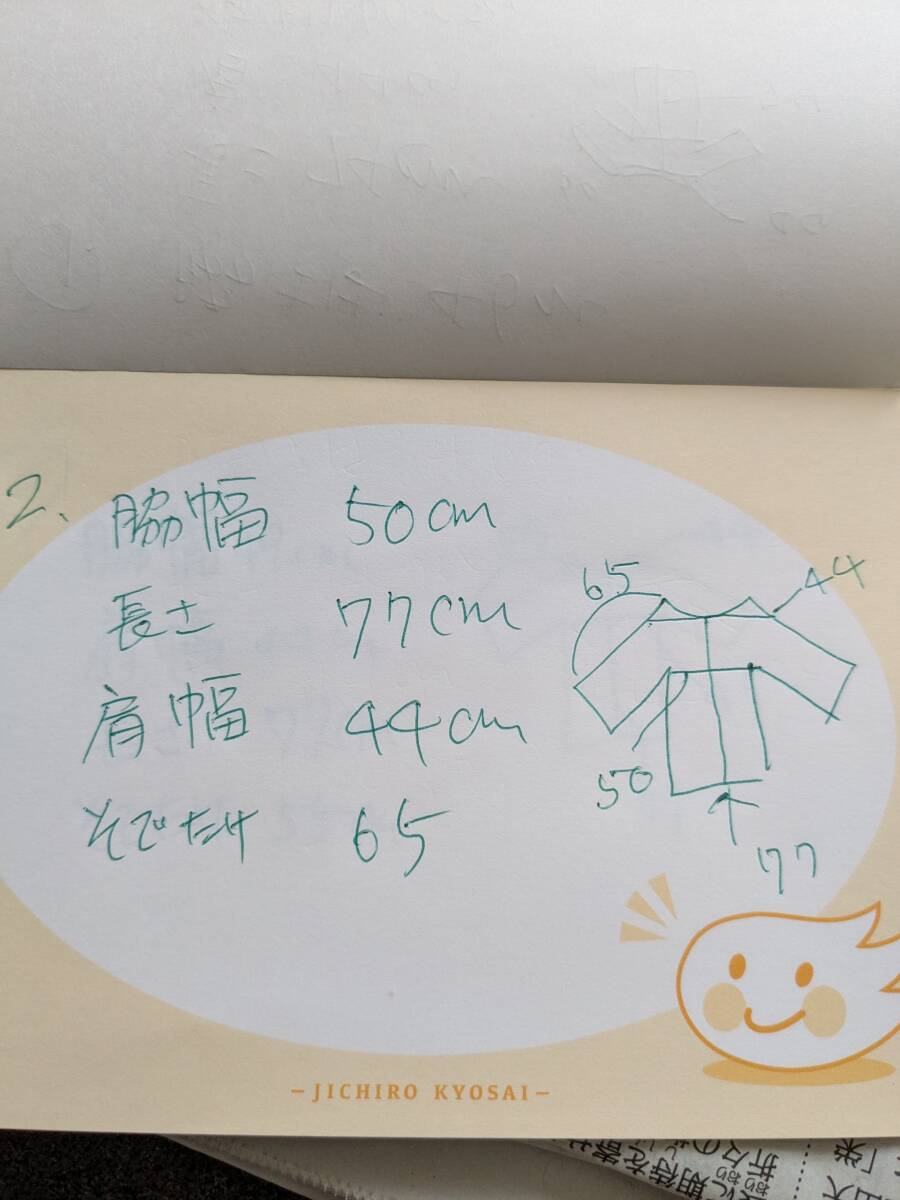 2、脇幅 50cm
長さ 77cm
肩幅 44cm
そでたけ 65
65
44
50
77
- JICHIRO KYOSAI -
期待を
折々の
おり